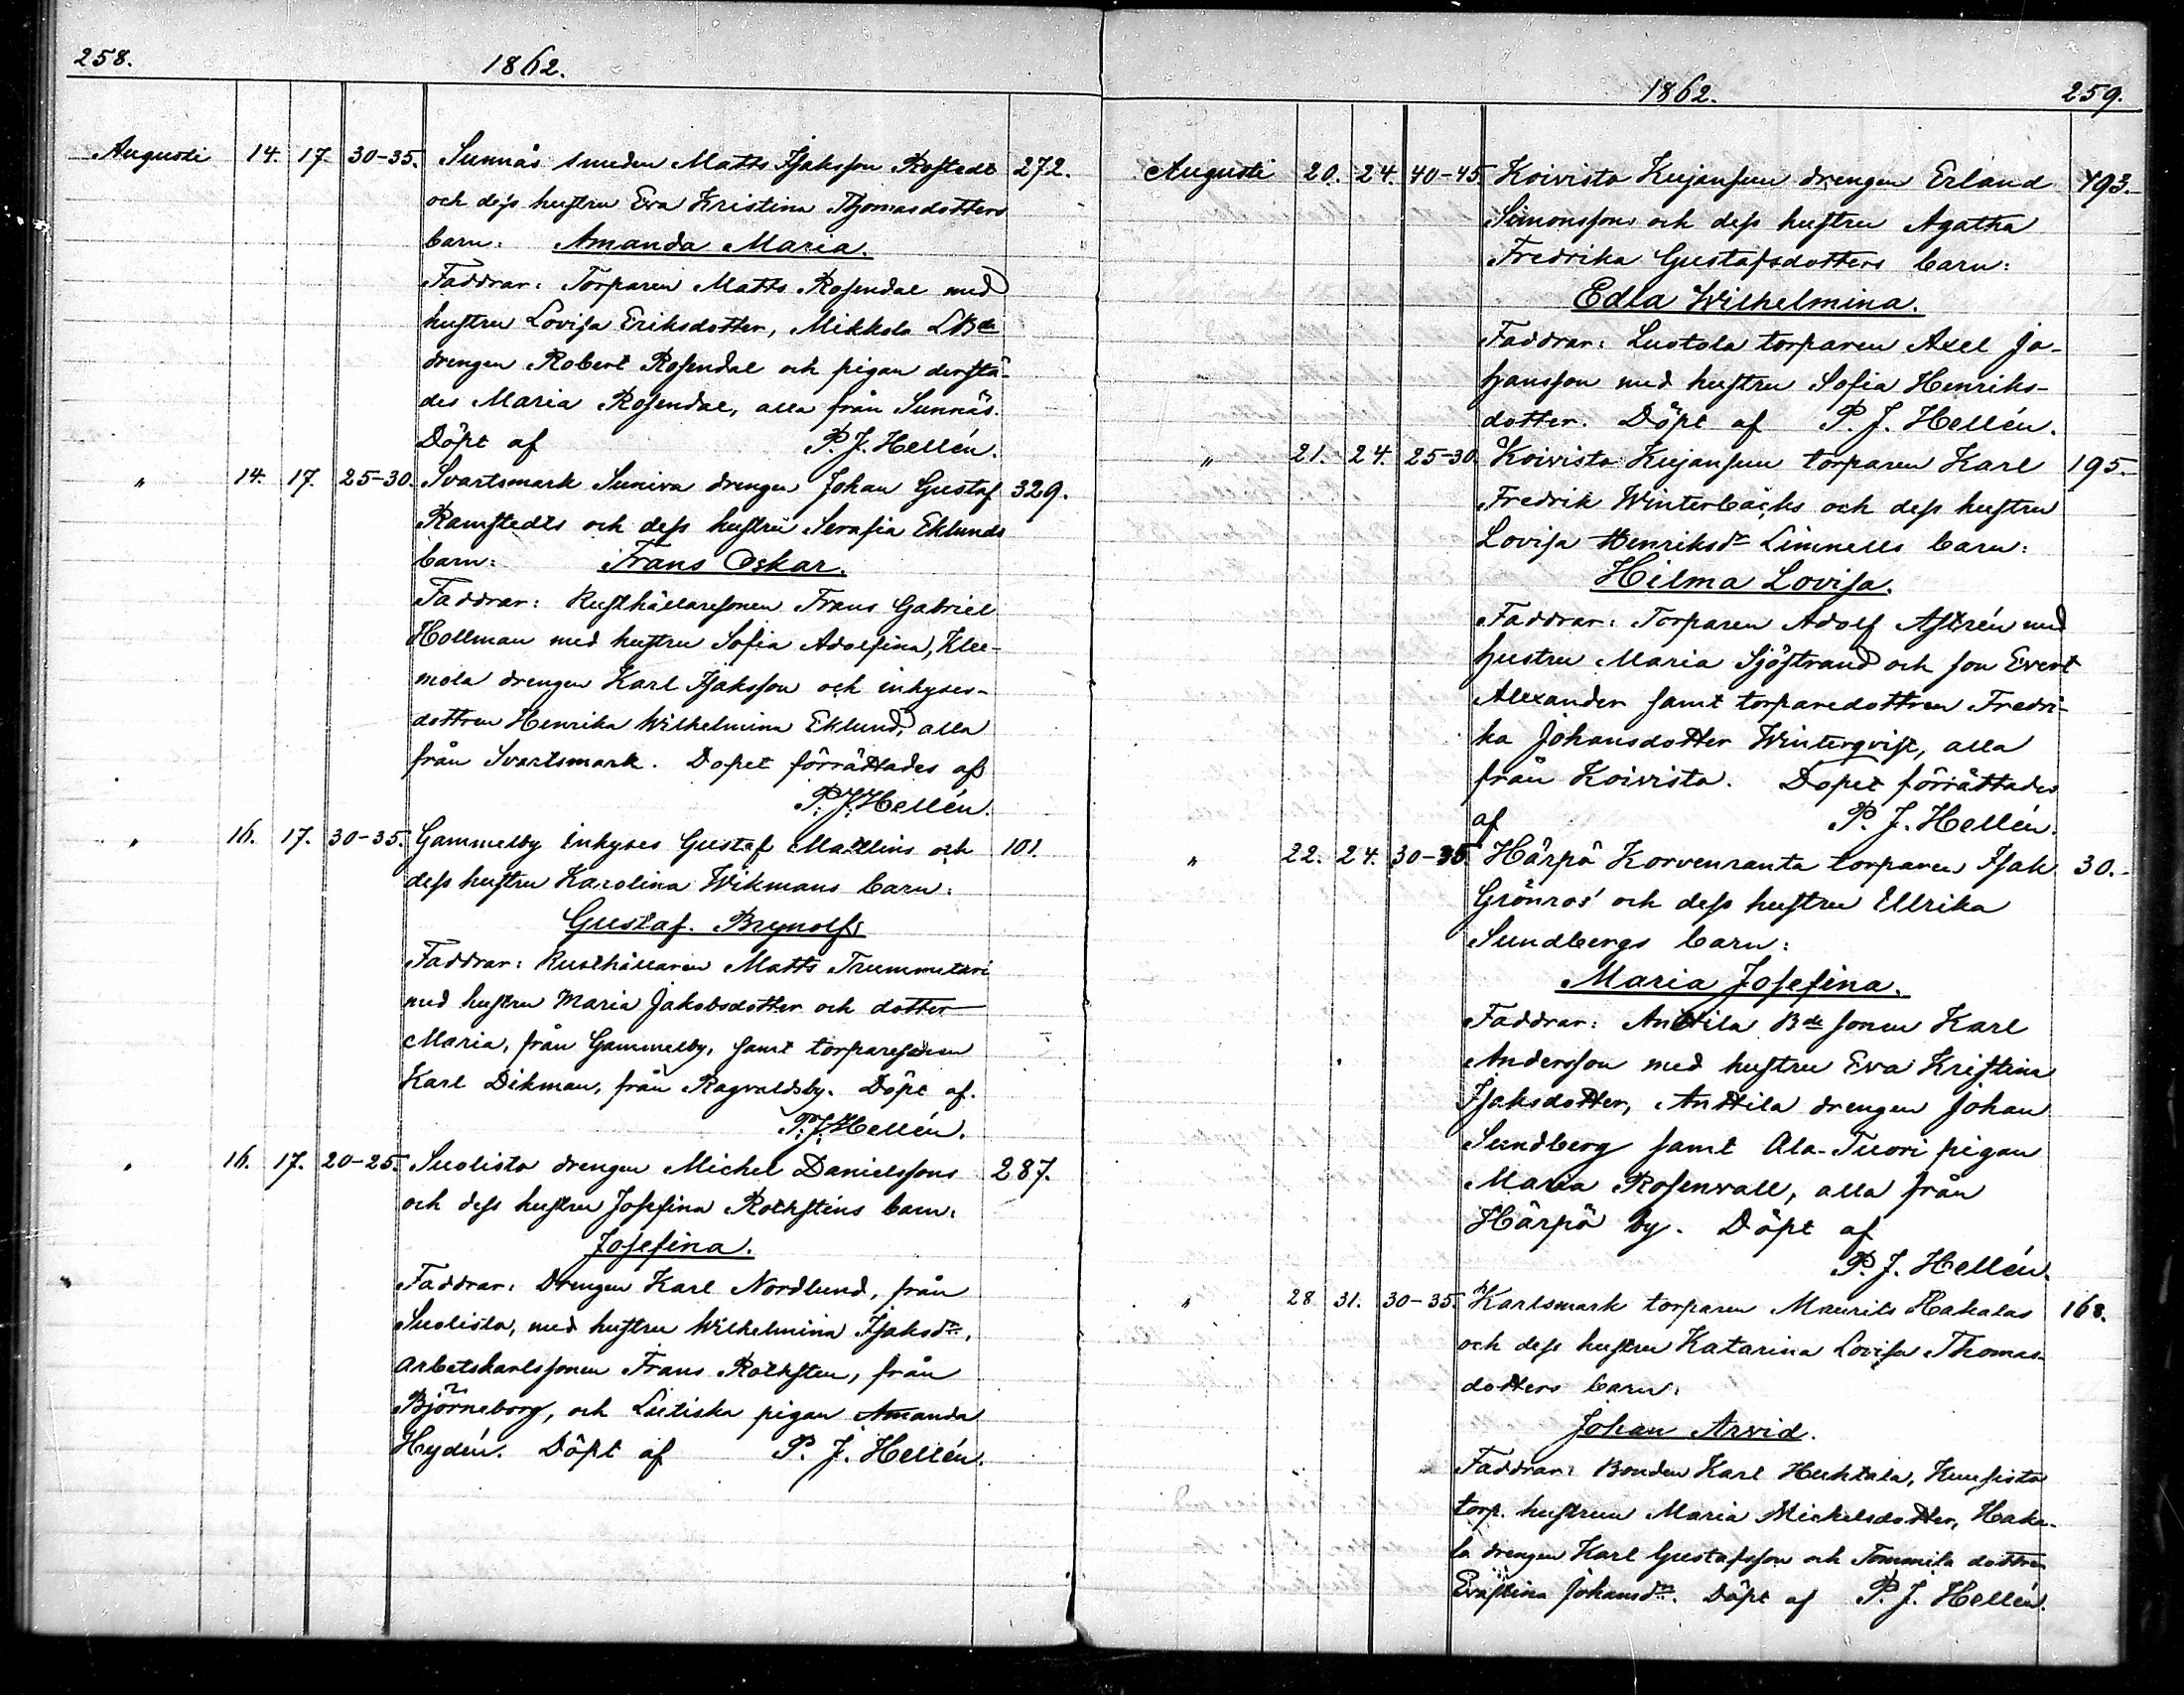 258.
1862.
Augusti 14. 17. 30-35. Sunnäs smeden Matts Isaksson Rostedt 272.
och dess hustru Eva Kristina Thomasdotters
barn: Amanda Maria.
Faddrar: Torparen Matts Rosendal med
hustru Lovisa Eriksdotter, Mikkola LBde
drengen Robert Rosendal och pigan derstä-
des Maria Rosendal, alla från Sunnäs.
Döpt af P. J. Hellén.
" 14. 17. 25-30. Svartsmark Suniva drengen Johan Gustaf 329.
Ramstedts och dess hustru Serafia Eklunds
barn: Frans Oskar.
Faddrar: Rusthållaresonen Frans Gabriel
Hollman med hustru Sofia Adolfina, Klee-
mola drengen Karl Isaksson och inhyses-
dottren Henrika Wilhelmina Eklund, alla
från Svartsmark. Dopet förrättades af
P. J. Hellén.
" 16. 17. 30-35. Gammelby inhyses Gustaf Mattlins och 101.
dess hustru Karolina Wikmans barn:
Gustaf Brynolf.
Faddrar: Rusthållaren Matts Trummetari
med hustru Maria Jakobsdotter och dotter
Maria, från Gammelby, samt torparesonen
Karl Dikman, från Ragvaldsby. Döpt af.
P. J. Hellén.
" 16. 17. 20-25. Suolisto drengen Michel Danielssons 287.
och dess hustru Josefina Rothstens barn:
Josefina.
Faddrar: Drengen Karl Nordlund, från
Suolisto, med hustru Wilhelmina Isaksdr,
arbetskarlssonen Frans Rothsten, från
Björneborg, och Lietiska pigan Amanda
Hydén. Döpt af P. J. Hellén.
1862.
259.
Augusti 20. 24. 40-45. Koivisto Kujansuu drengen Erland 193.
Simonssons och dess hustru Agatha
Fredrika Gustafsdotters barn:
Edla Wilhelmina.
Faddrar: Luotola torparen Axel Jo-
hansson med hustru Sofia Henriks-
dotter. Döpt af P. J. Hellén.
" 21. 24. 25-30. Koivisto Kujansuu torparen Karl 195.
Fredrik Winterbäcks och dess hustru
Lovisa Henriksdr Limnells barn:
Hilma Lovisa.
Faddrar: Torparen Adolf Astrén med
hustru Maria Sjöstrand och son Evert
Alexander samt torparedottren Fredri-
ka Johansdotter Winterqvist, alla
från Koivisto. Dopet förrättades
af P. J. Hellén.
" 22. 24. 30-35. Härpö Korvenranta torparen Isak 30.
Grönros' och dess hustru Ulrika
Sundbergs barn:
Maria Josefina.
Faddrar: Anttila Bde sonen Karl
Andersson med hustru Eva Kristina
Isaksdotter, Anttila drengen Johan
Sundberg samt Ala-Tuori pigan
Maria Rosenvall, alla från
Härpö by. Döpt af
P. J. Hellén.
" 28. 31. 30-35. Karlsmark torparen Maurits Hakalas 168.
och dess hustru Katarina Lovisa Thomas-
dotters barn:
Johan Arvid.
Faddrar: Bonden Karl Huhtala, Kuusisto
torp. hustrun Maria Mickelsdotter, Haka-
la drengen Karl Gustafsson och Tommila dottren
Evastina Johansdr. Döpt af P. J. Hellén.